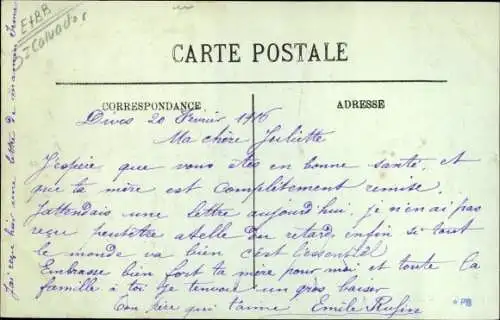 E+BB
Calvados
CARTE POSTALE
CORRESPONDANCE
ADRESSE
Dives 20 Fevrier 1916
Ma chère Juliette
J'espère que vous êtes en bonne santé et
que ta mère est complètement remise.
J'attendais une lettre aujourd'hui je n'en ai pas
reçu peutêtre atelle du retard, enfin si tout
le monde va bien c'est l'essentiel
Embrasse bien fort ta mère pour moi et toute la
famille à toi je t'envoie un gros baiser
Ton père qui t'aime Emile Rufin
J'ai reçu hier une lettre de maman
PB